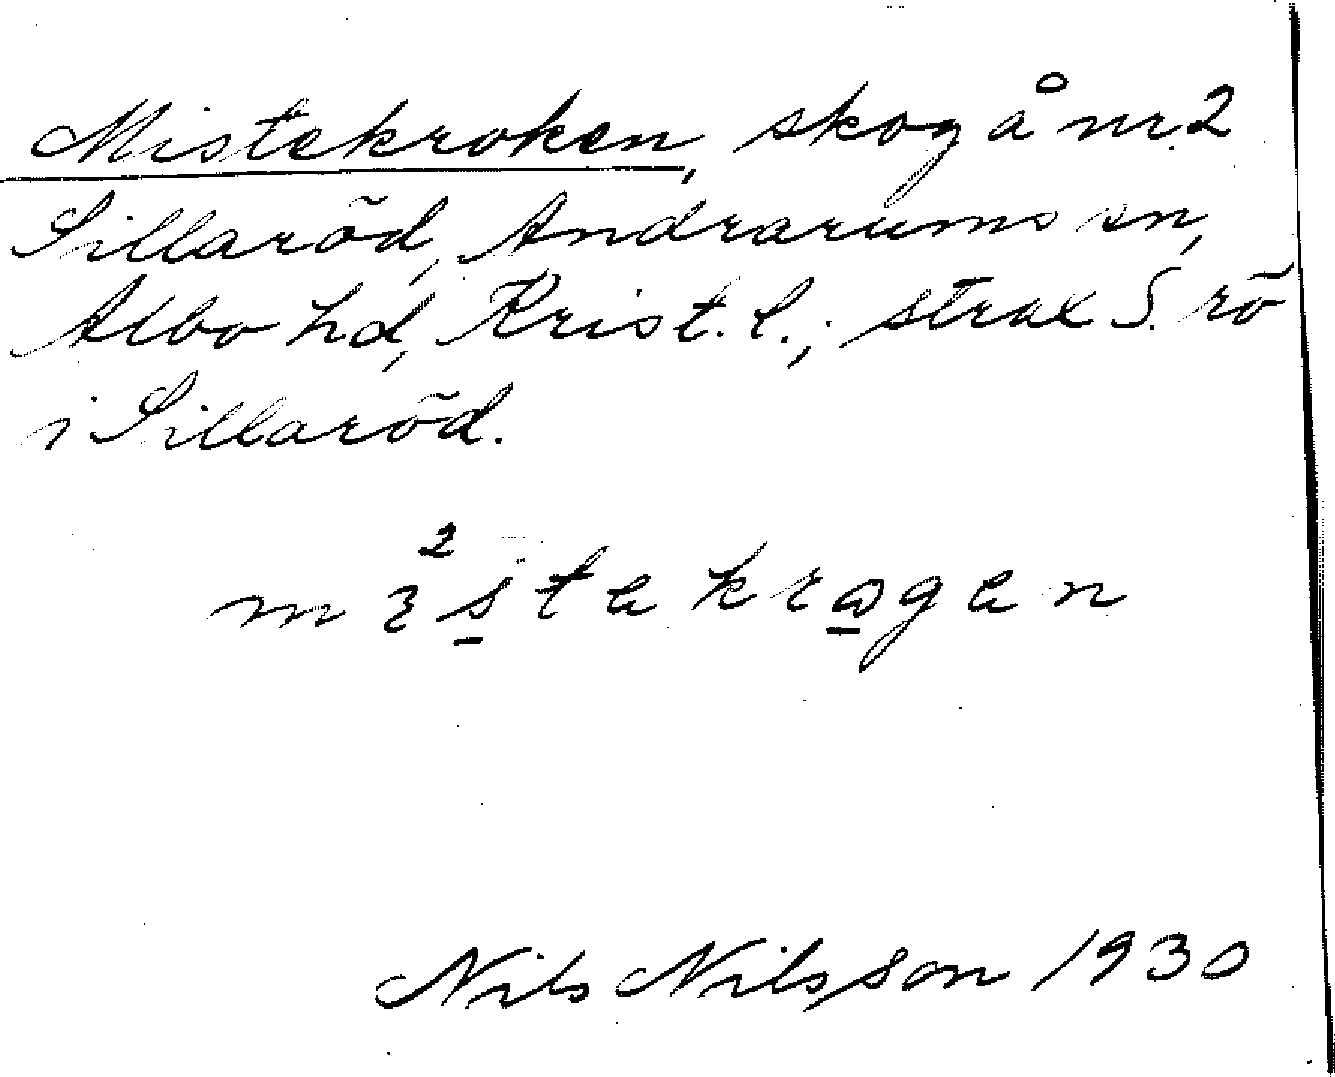 Mistekroken, skog å nr. 2
Sillaröd, Andrarums sn,
Albo hd, Krist. l.; strax S. rö
i Sillaröd.
Nils Nilsson 1930